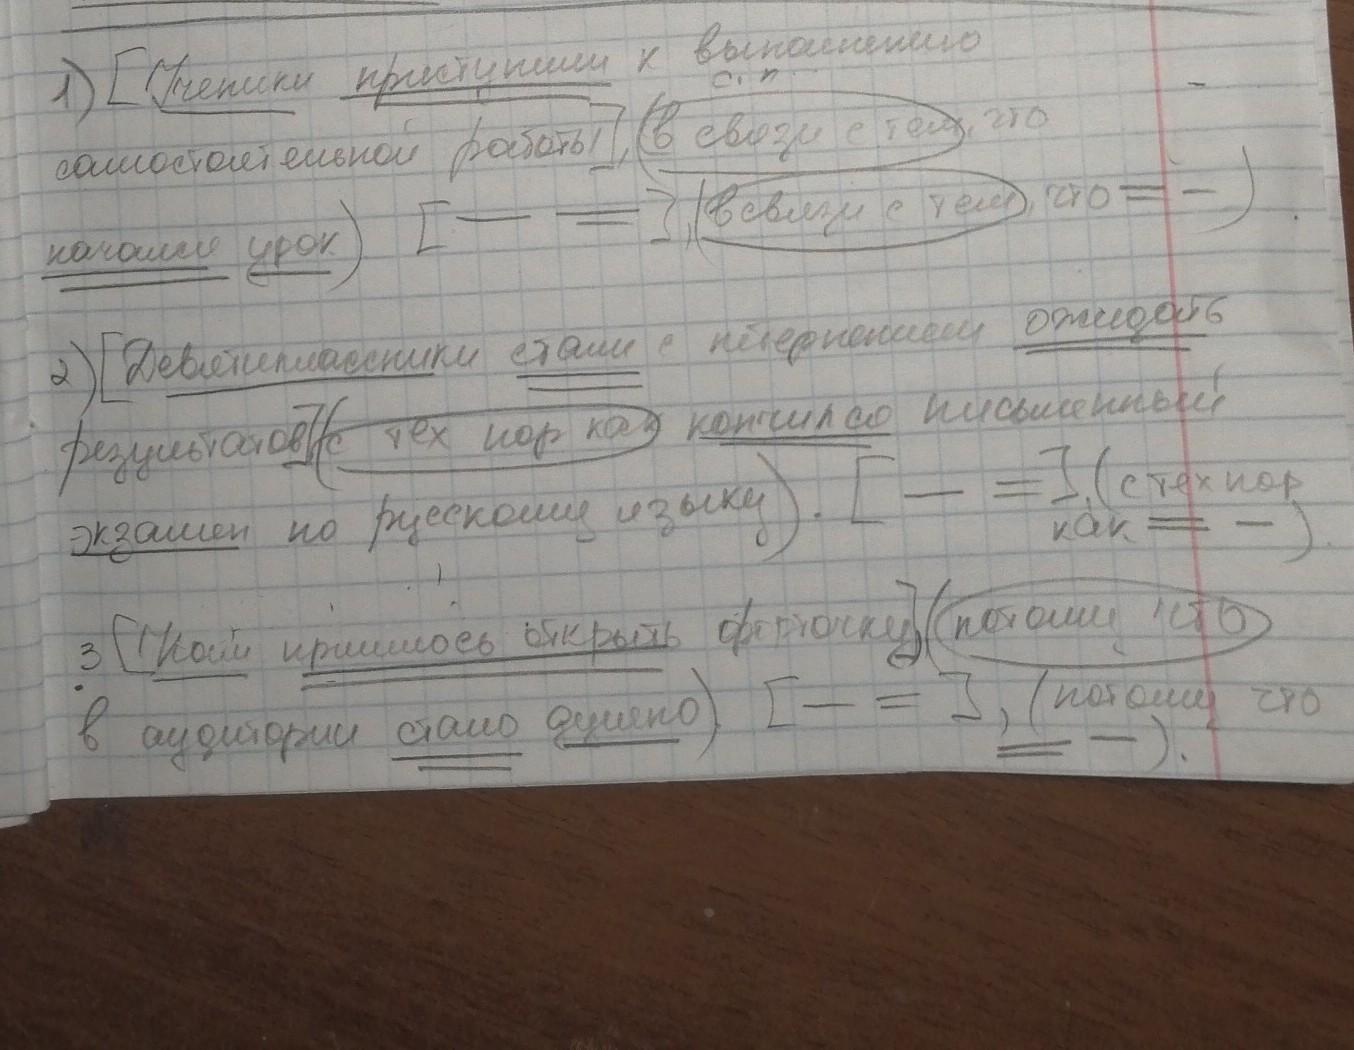 1) [Ученики приступили к выполнению
с.п.
самостоятельной работы], (в связи с тем, что
начался урок) [— =], (в связи с тем, что = —).
2) [Девятиклассники стали с нетерпением ожидать
результатов], (с тех пор как кончился письменный
экзамен по русскому языку). [— =], (с тех пор
как = —).
3 [Нам пришлось открыть форточку], (потому что
в аудитории стало душно) [— =], (потому что
= —).